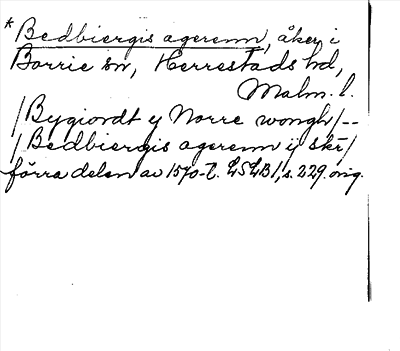 * Bedbiergis agerenn, åker, i
Borrie sn, Herrestads hd,
Malm. l.
/Bygiordt ij Norre wongh/--
/Bedbiergis agerenn ij skr/
förra delen av 1570-t. LSLB1, s. 229. orig.